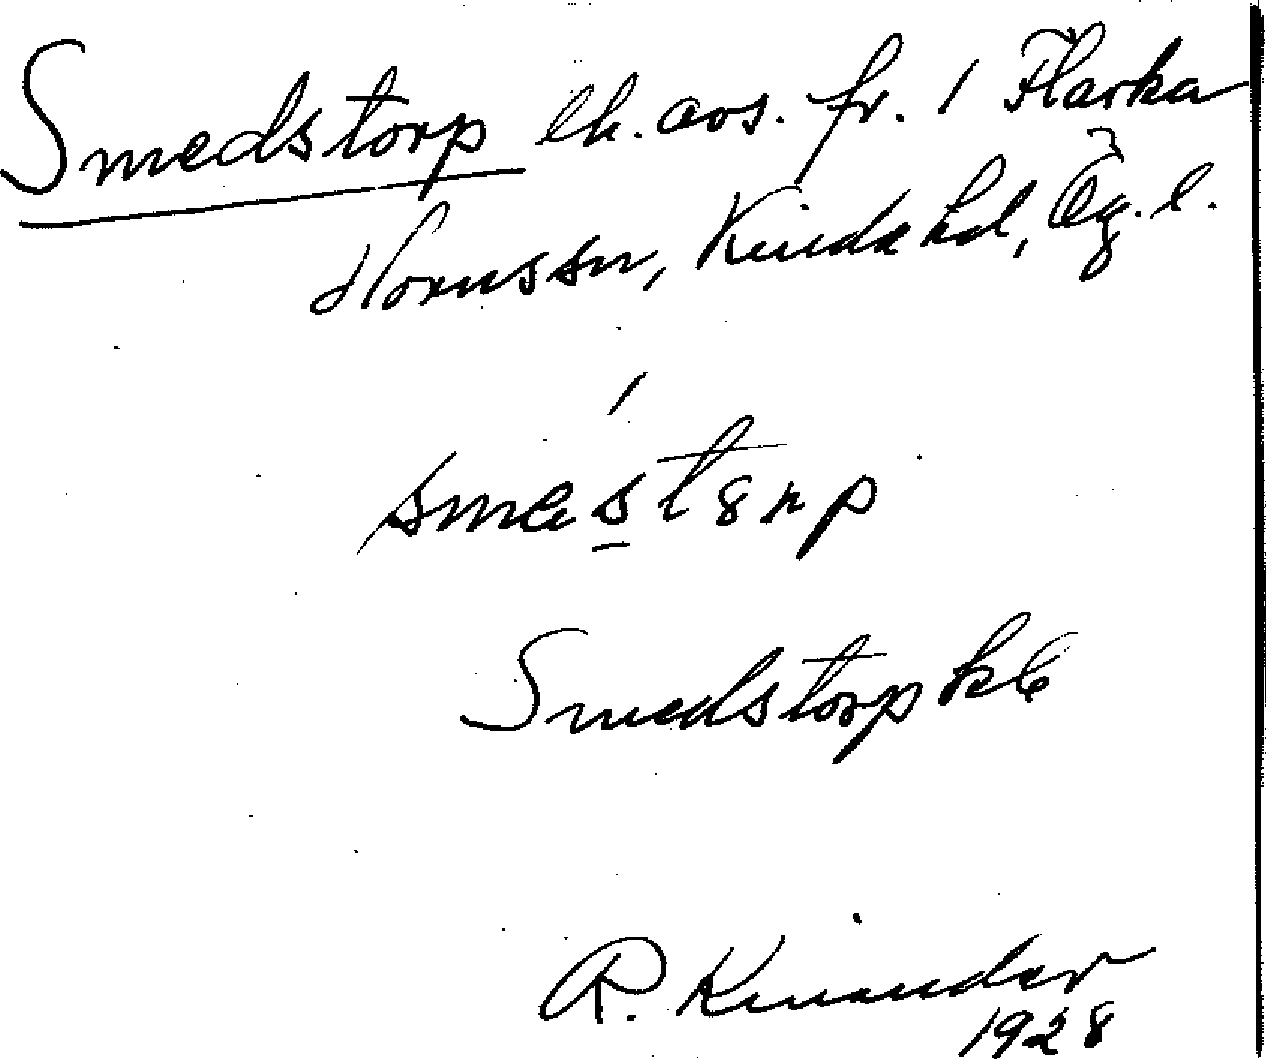 Smedstorp lh. avs. fr. 1 Flarka
Hornssn, Kinda hd, Ög. l.
smestorp
Smedstorp kl
R. Kinander
1928